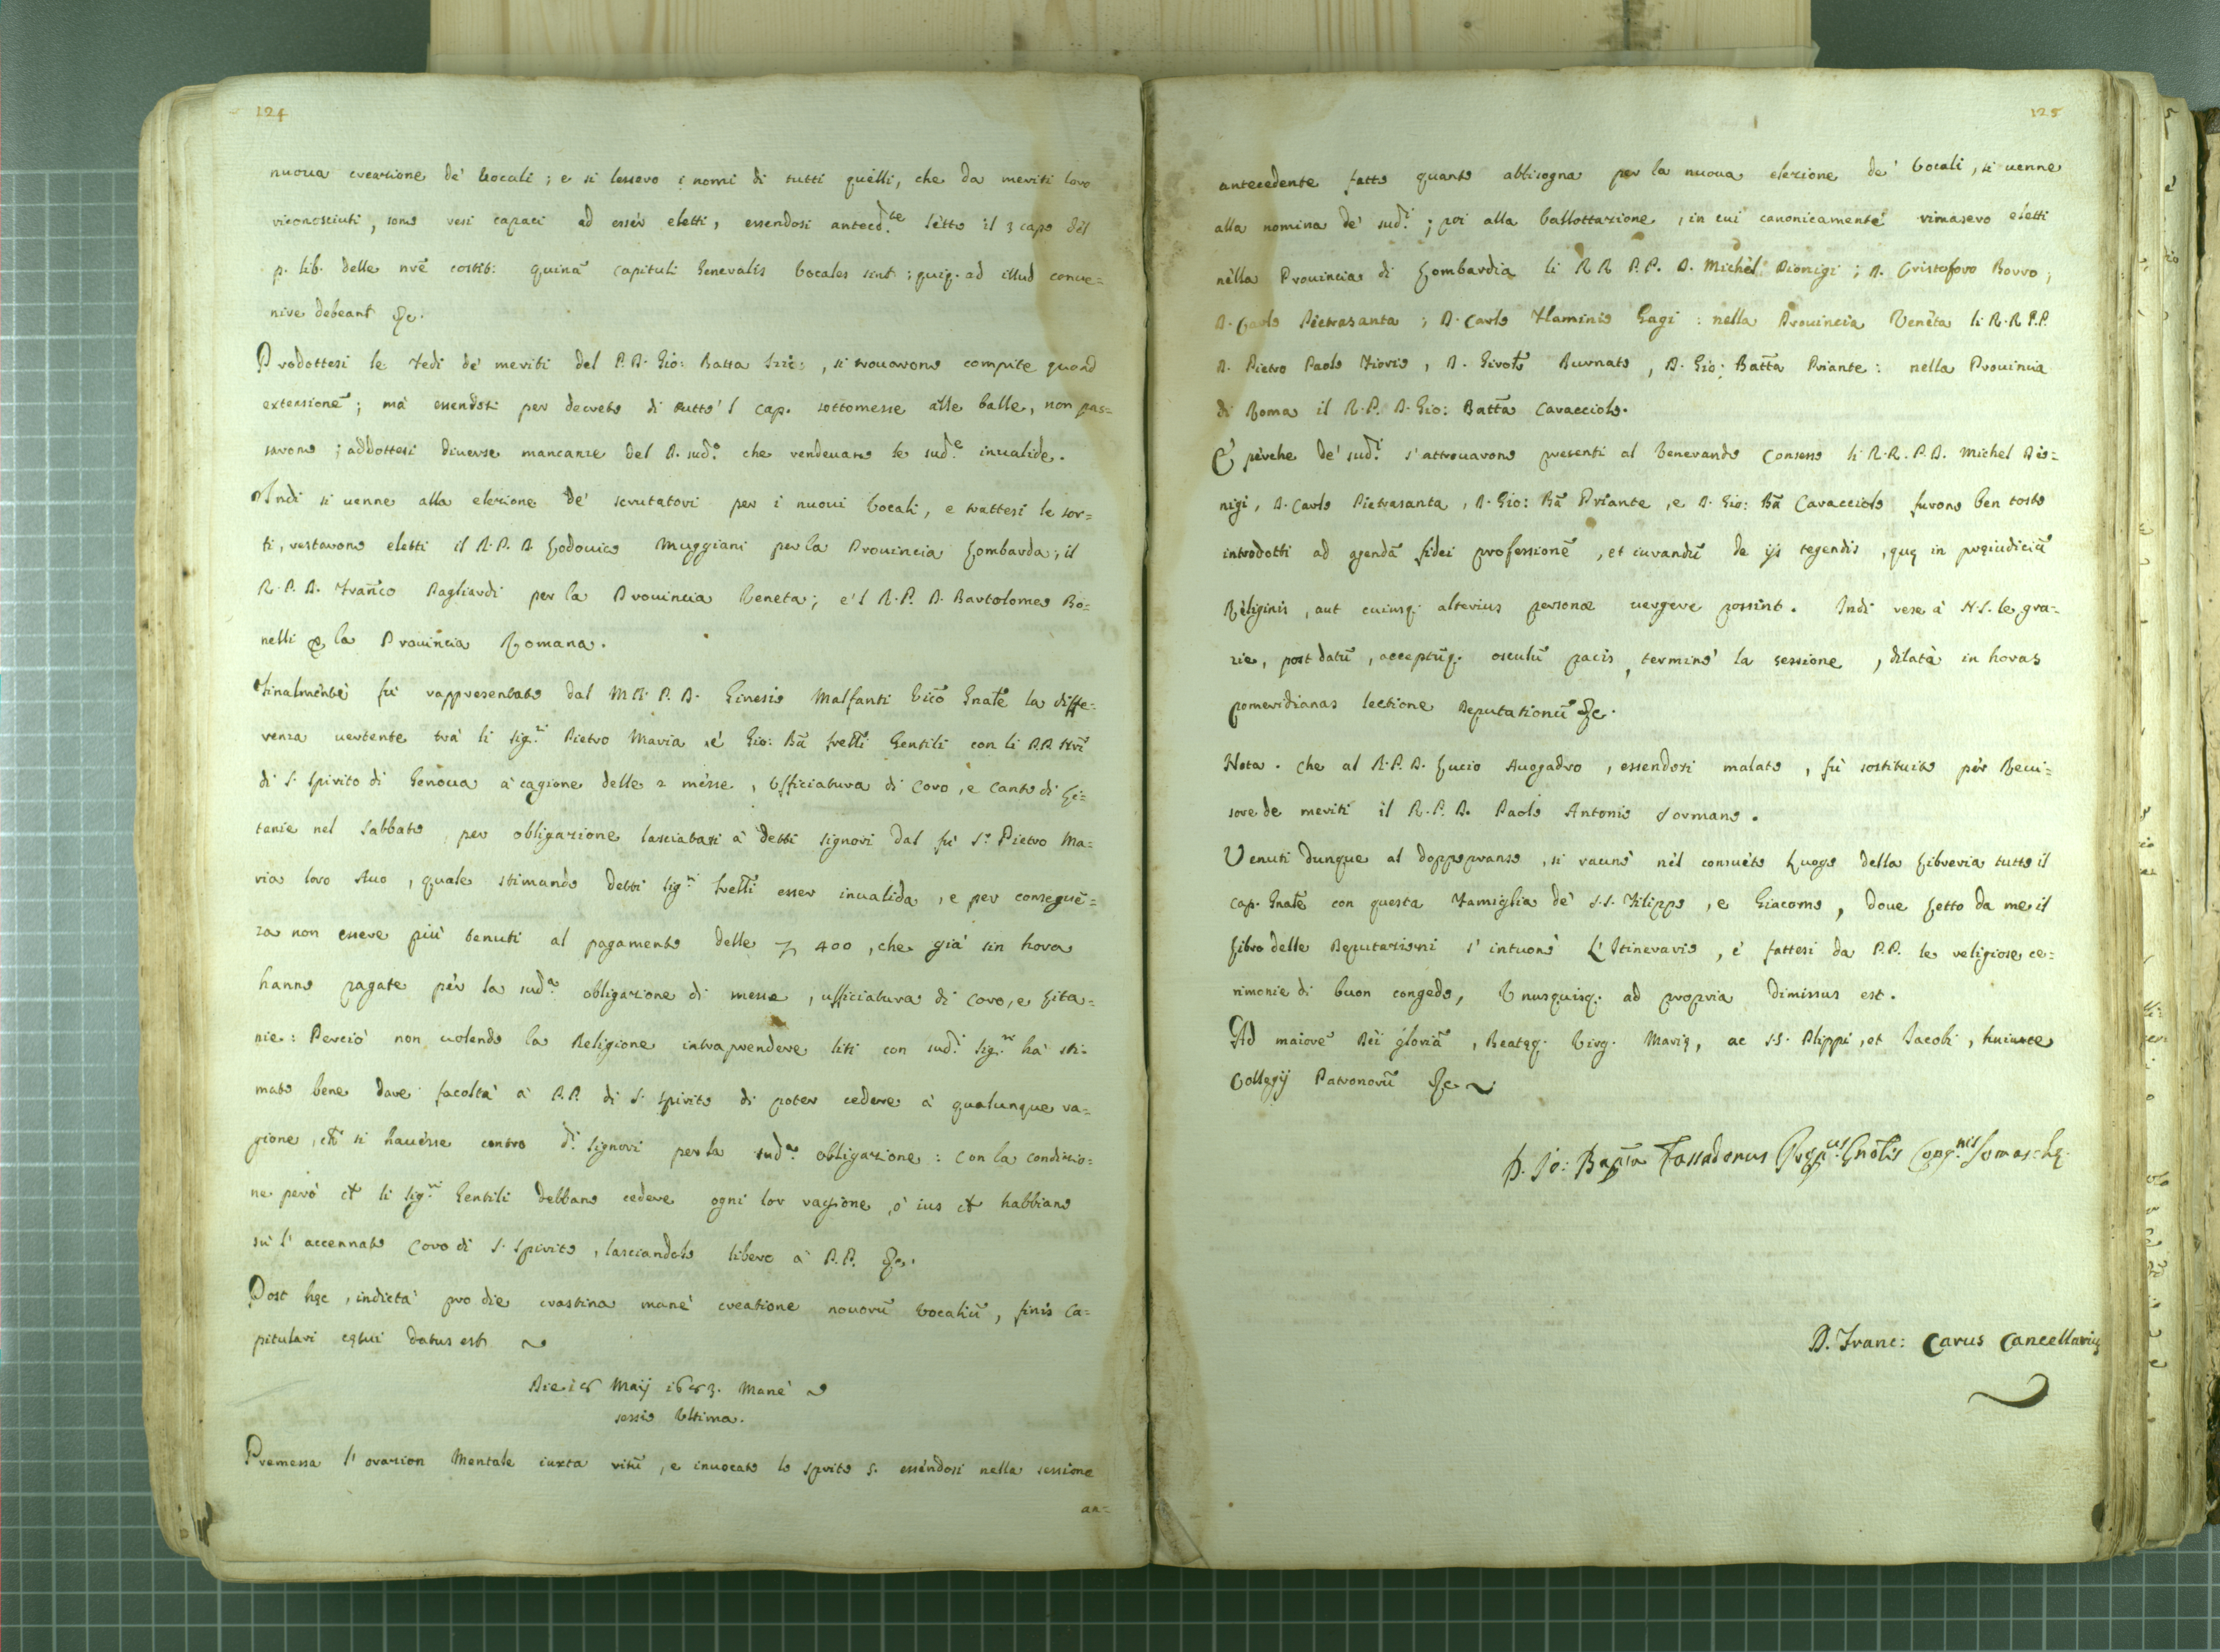 124
nuoua creazione de' Vocali ; e si lessero i nomi di tutti quelli, che da meriti loro
riconosciuti, sono resi capaci ad esser eletti, essendosi anteced.te letto il 3 capo del
p. lib. delle nrē costit: quinā Capituli Generalis Vocales sint ; quiq. ad illud conue=
nire debeant &c.
Prodottesi le fedi de' meriti del P. D. Gio: Batta , si trouarono compite quoad
extensionē ; mà essendosi per decreto di tutto 'l Cap. sottomesse alle balle, non pas=
sarono ; addottesi diuerse mancanze del D. sud.o che rendeuano le sud.e inualide.
Indi si uenne alla elezione de' scrutatori per i nuoui Vocali, e trattesi le sor=
ti, restarono eletti il R. P. D. Lodouico Muggiani per la Prouincia Lombarda ; il
R. P. D. Frañco Pagliardi per la Prouincia Veneta ; e 'l R. P. D. Bartolomeo Bo=
nelli p la Prouincia Romana.
Finalmente fù rappresentato dal M. R. P. D. Ginesio Malfanti Vicō Gnāle la diffe=
renza uertente trà li Sig.ri Pietro Maria, e Gio: Bā frelli Gentili con li P.P. nrī
di S. Spirito di Genoua à cagione delle 2 messe, Ufficiatura di Coro, e Canto di Li=
tanie nel Sabbato per obligazione lasciatasi à detti Signori dal fù S.r Pietro Ma=
ria loro Auo, quale stimando detti Sig.ri frelli esser inualida, e per conseguē=
za non essere più tenuti al pagamento delle 400, che già sin hora
hanno pagate per la sud.a obligazione di messe, ufficiatura di Coro, e Lita=
nie : Perciò non uolendo la Religione intraprendere liti con sud.i Sig.ri hà sti=
mato bene dare facoltà à P.P. di S. Spirito di poter cedere à qualunque ra=
gione, ch̄ si hauesse contro d.i Signori per la sud.a obligazione : con la condizio=
ne però ch̄ li Sig.ri Gentili debbano cedere ogni lor ragione, ò ius ch̄ habbiano
sù l' accennato Coro di S. Spirito, lasciandolo libero à P.P. &c.
Post hęc, indictà pro die crastina manè creatione nouorū Vocaliū, finis Ca=
pitulari cętui datus est.
Die 18 Maij 1683. Manè
sessio Ultima.
Premessa l' orazion Mentale iuxta ritū, e inuocato lo Spirito S. essendosi nella sessione
an=
125
antecedente fatto quanto abbisogna per la nuoua elezione de' Vocali, si uenne
alla nomina de' sud.i ; poi alla ballottazione, in cui canonicamente rimasero eletti
nella Prouincia di Lombardia li R R P.P. D. Michel Dionigi ; D. Cristoforo Borro ;
D. Carlo Pietrasanta ; D. Carlo Flaminio Gagi : nella Prouincia Veneta li R. R P.P.
D. Pietro Paolo Fiorio, D. Girol.o Burnato, D. Gio: Batt̄a Priante : nella Prouincia
di Roma il R. P. D. Gio: Batt̄a Caracciolo.
E perche de' sud.i s' attrouarono presenti al Venerando Consesso li R. R. P. D. Michel Dio=
nigi, D. Carlo Pietrasanta, D. Gio: Bā Priante, e D. Gio: Bā Caracciolo furono ben tosto
introdotti ad agendā fidei professionē, et iurandū de ijs tegendis, quę in pręiudiciū
Religinis, aut cuiusq. alterius personæ uergere possint. Indi rese à N. S. le gra=
zie, post datū, acceptūq. osculū pacis, terminò la sessione, dilatà in horas
pomeridianas lectione Deputationū &c.
Nota. che al R. P. D. Lucio Auogadro, essendosi malato, fù sostituito per Reui=
sore de meriti il R. P. D. Paolo Antonio Sormano.
Venuti dunque al doppopranso, si raunò nel consueto Luogo della Libreria tutto il
Cap. Gnāle con questa Famiglia de' S.S. Filippo, e Giacomo, doue Letto da me il
Libro delle Deputazioni s' intuonò L' Itinerario, e fattesi da P.P. le religiose ce=
rimonie di buon congedo, Unusquisq. ad propria dimissus est.
Ad maiorē Dei gloriā, Beatęq. Virg. Marię, ac S.S. Plippi, et Iacobi, huiusce
Collegij Patronorū &c.
D. Jo: Bap̄ta Fassadonus Gnālis Cong.nis Somaschę.
D. Franc: Carus Cancellarius